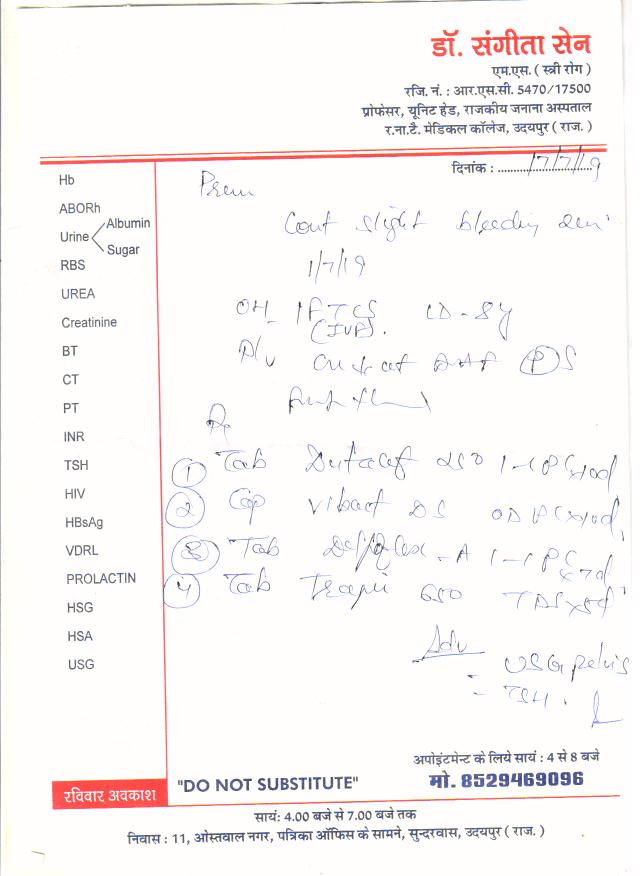 डॉ. संगीता सेन
एम.एस. ( स्त्री रोग )
रजि. नं. : आर.एस.सी. 5470/17500
प्रोफेसर, यूनिट हेड, राजकीय जनाना अस्पताल
र.ना.टै. मेडिकल कॉलेज, उदयपुर ( राज. )
दिनांक : 17/7/19
Hb
ABORh
Urine Albumin
Sugar
RBS
UREA
Creatinine
BT
CT
PT
INR
TSH
HIV
HBsAg
VDRL
PROLACTIN
HSG
HSA
USG
Prem
slight bleeding
1/7/19
OH - 1FTCS LD - 8y
P/V
Rx
1 Tab 250 1-1
2 Cap Vibact DS OD
3 Tab - A 1-1
4 Tab 650 TDS x 5d
Adv USG pelvis
- TSH.
अपोइंटमेन्ट के लिये सायं : 4 से 8 बजे
मो. 8529469096
"DO NOT SUBSTITUTE"
रविवार अवकाश
सायं: 4.00 बजे से 7.00 बजे तक
निवास : 11, ओस्तवाल नगर, पत्रिका ऑफिस के सामने, सुन्दरवास, उदयपुर ( राज. )